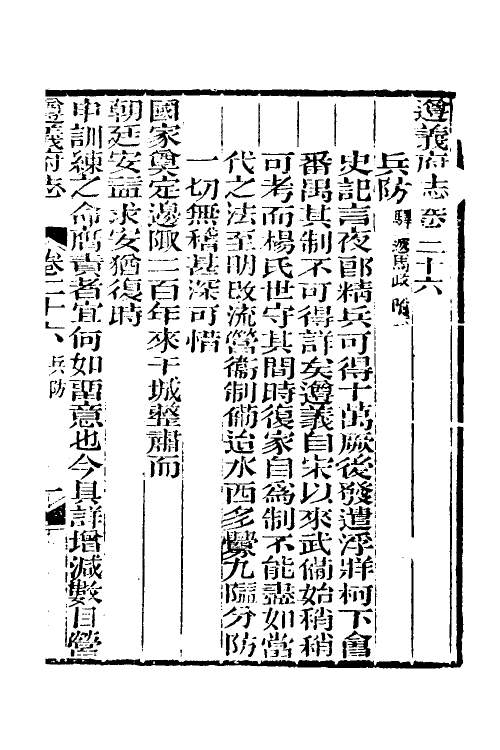 遵義府志卷二十六
兵防 驛遞馬政附
史記言夜郎精兵可得十萬厥後發遣浮牂柯下會
番禺其制不可得詳矣遵義自宋以來武備始稍稍
可考而楊氏世守其間時復家自爲制不能盡如當
代之法至明改流營衞制備迨水西多釁九隘分防
一切無稽甚深可惜
國家奠定邊陬二百年來干城整肅而
朝廷安益求安猶復時
申訓練之命膺責者宜何如畱意也今具詳增減數目營
遵義府志 卷二十六 兵防 一